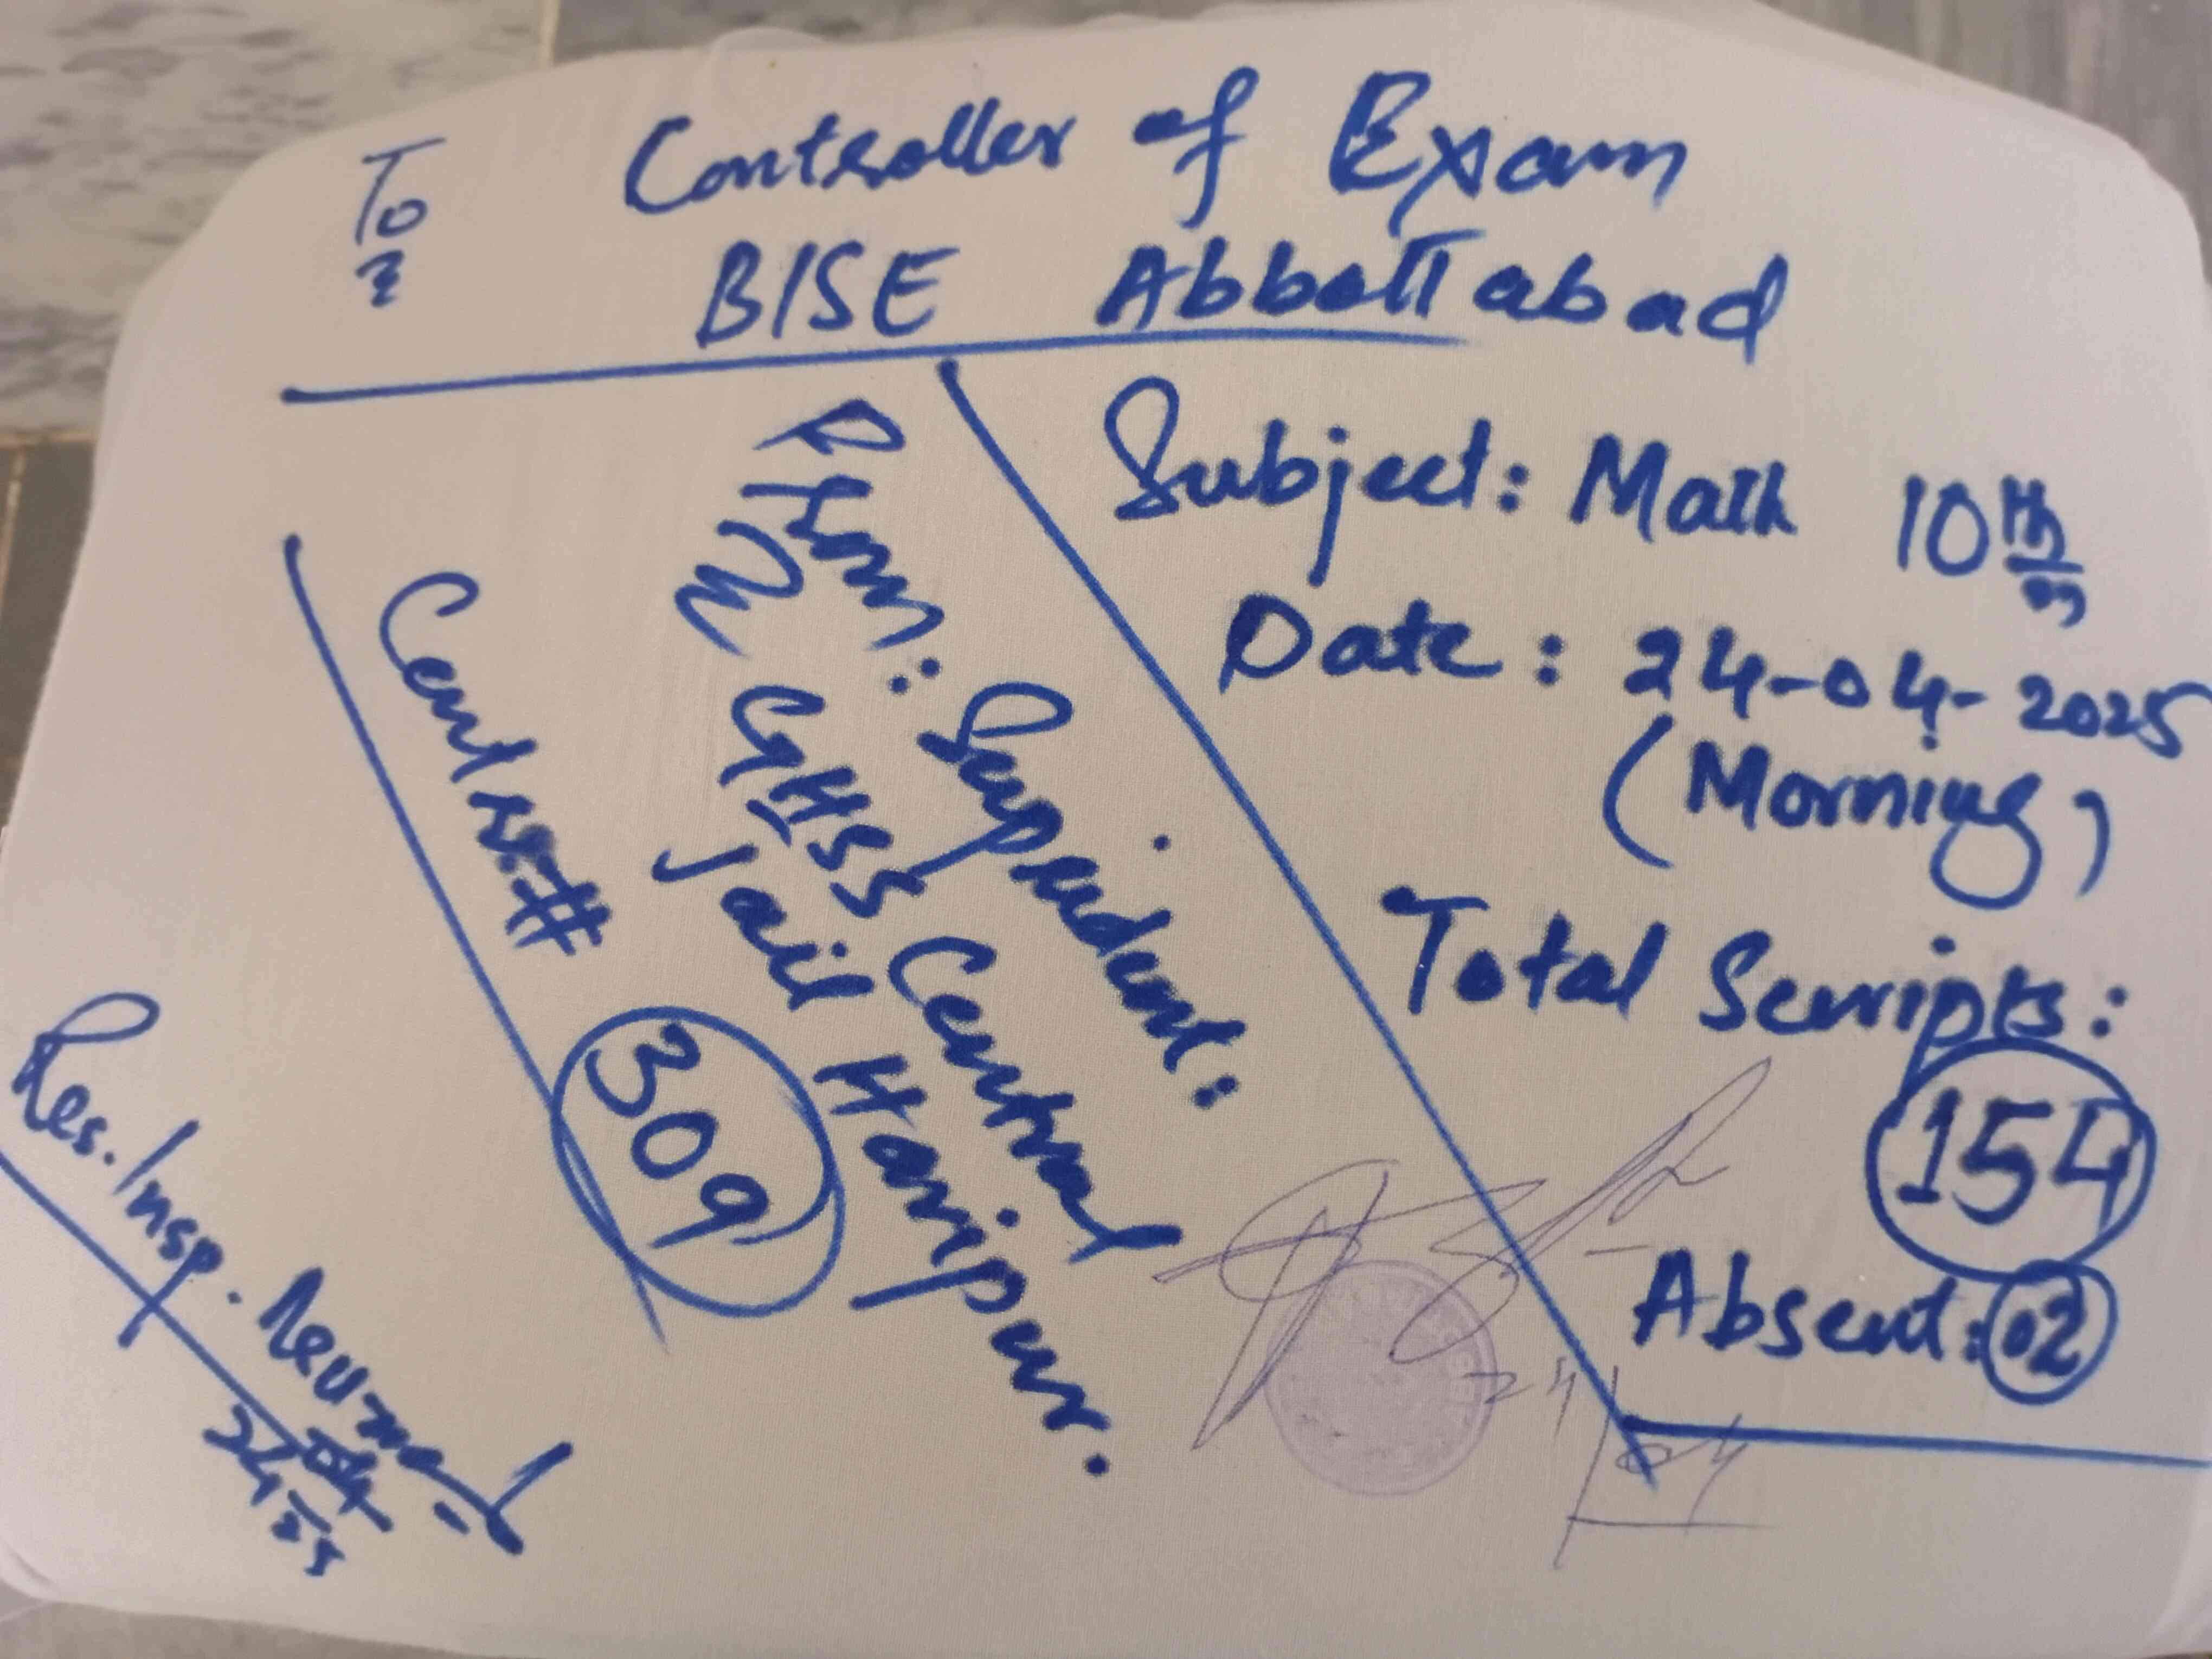 To
Controller of Exam
BISE Abbottabad
Subject: Math 10th
Date: 24-04-2025
(Morning)
Total Scripts:
154
Absent: 02
From: Supridient:
GHSS Central
Jail Haripur.
Centre #
309
Res. Insp.
24/04